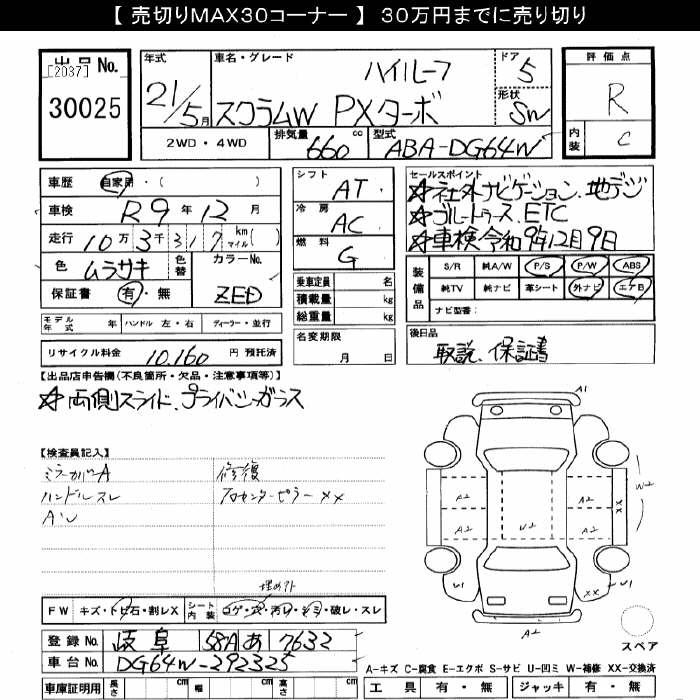 【 売切りMAX30コーナー 】 30万円までに売り切り
出品No.
[2037]
30025
年式
21/5月
車名・グレード
ハイルーフ
スクラムW PXターボ
ドア
5
形状
SW
評価点
R
内装
C
2WD・4WD
排気量 660 cc
型式 ABA-DG64W
車歴 自家用・( )
車検 R9年12月
走行 10万3千317 km マイル( )
色 ムラサキ 色替 カラーNo.
ZED
保証書 有・無
シフト AT
冷房 AC
燃料 G
乗車定員 名
積載量 kg
総重量 kg
名変期限
月 日
セールスポイント
☆社外ナビゲーション、地デジ
☆ブルートゥース、ETC
☆車検令和9年12月9日
装備品
S/R 純A/W P/S P/W ABS
純TV 純ナビ 革シート 外ナビ エアB
ナビ型番:
モデル年式 年 ハンドル 左・右 ディーラー・並行
リサイクル料金 10,160 円 預託済
後日品
取説、保証書
【出品店申告欄(不良箇所・欠品・注意事項等)】
☆両側スライド、プライバシーガラス
【検査員記入】
ミラーカバーA 修復
ハンドルスレ
埋めアト
FW キズ・トビ石・割レX シート内装 コゲ・穴・汚れ・シミ・破レ・スレ
登録No. 岐阜 581 あ 7632
車台No. DG64W-292325
車庫証明用 長さ cm 幅 cm 高さ cm
A1
W2
XX
A2 A2
A2 U2 A2
U1 XX U1
A2
スペア
A-キズ C-腐食 E-エクボ S-サビ U-凹ミ W-補修 XX-交換済
工具 有・無 ジャッキ 有・無